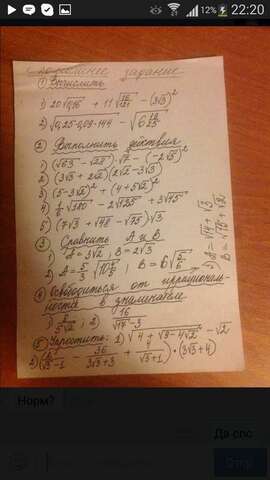 12% 22:20
задание
① Вычислить
1) 20√0,16 + 11√(16/121) - (3√3)²
2) √(0,25·0,09·144) - √(6 19/25)
② Выполнить действия
1) (√63 - √28)·√7 - (-2√5)²
2) (3√3 + 2√2)(2√2 - 3√3)
3) (5-3√2)² + (4+5√2)²
5) (7√3 + √48 - √75)√3
③ Сравнить А и В
1) A = 3√2, B = 2√3
A = √14 + √3
B = √15 + √2
④ Освободиться от иррациональности в знаменателе
1) 2/(5√2), 2) 16/(√17-3)
⑤ Упростить: 1) √(4 + √(9-4√2)) - √2
2) (6/(√3-1) - 36/(3√3+3) + 4/(√3+1))·(3√3+4)
Норм?
Да спс